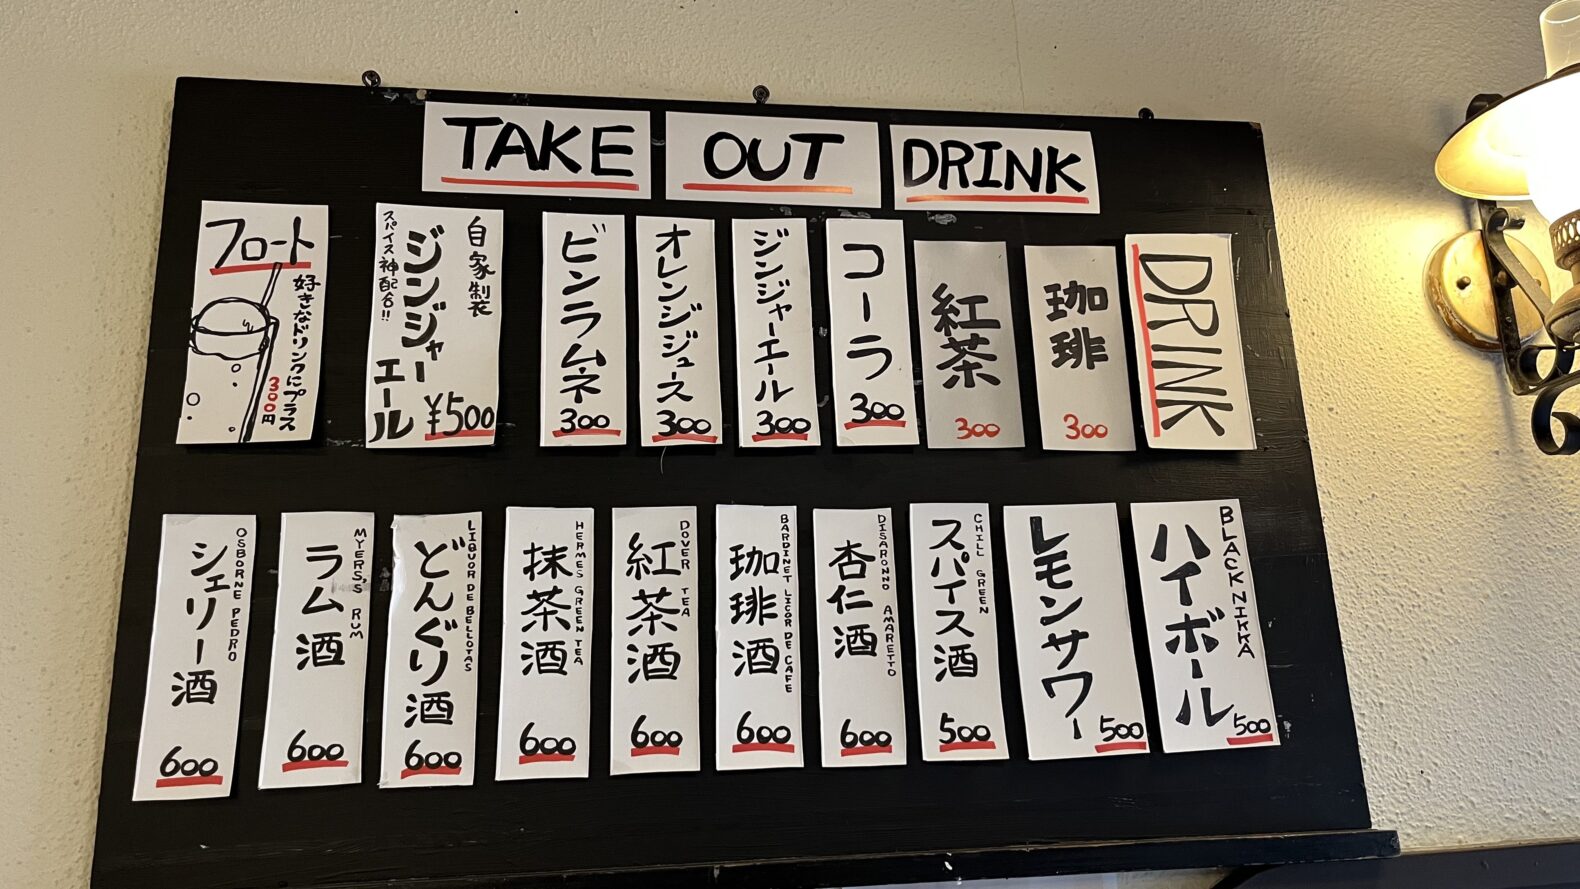 TAKE OUT DRINK
DRINK
珈琲
300
紅茶
300
コーラ
300
ジンジャーエール
300
オレンジジュース
300
ビンラムネ
300
自家製
ジンジャー
エール
スパイス神配合!!
¥500
フロート
好きなドリンクにプラス
300円
BLACK NIKKA
ハイボール
500
レモンサワー
500
CHILL GREEN
スパイス酒
500
DISARONNO AMARETTO
杏仁酒
600
BARDINET LICOR DE CAFE
珈琲酒
600
DOVER TEA
紅茶酒
600
HERMES GREEN TEA
抹茶酒
600
LIQUOR DE BELLOTAS
どんぐり酒
600
MYERS'S RUM
ラム酒
600
OSBORNE PEDRO
シェリー酒
600